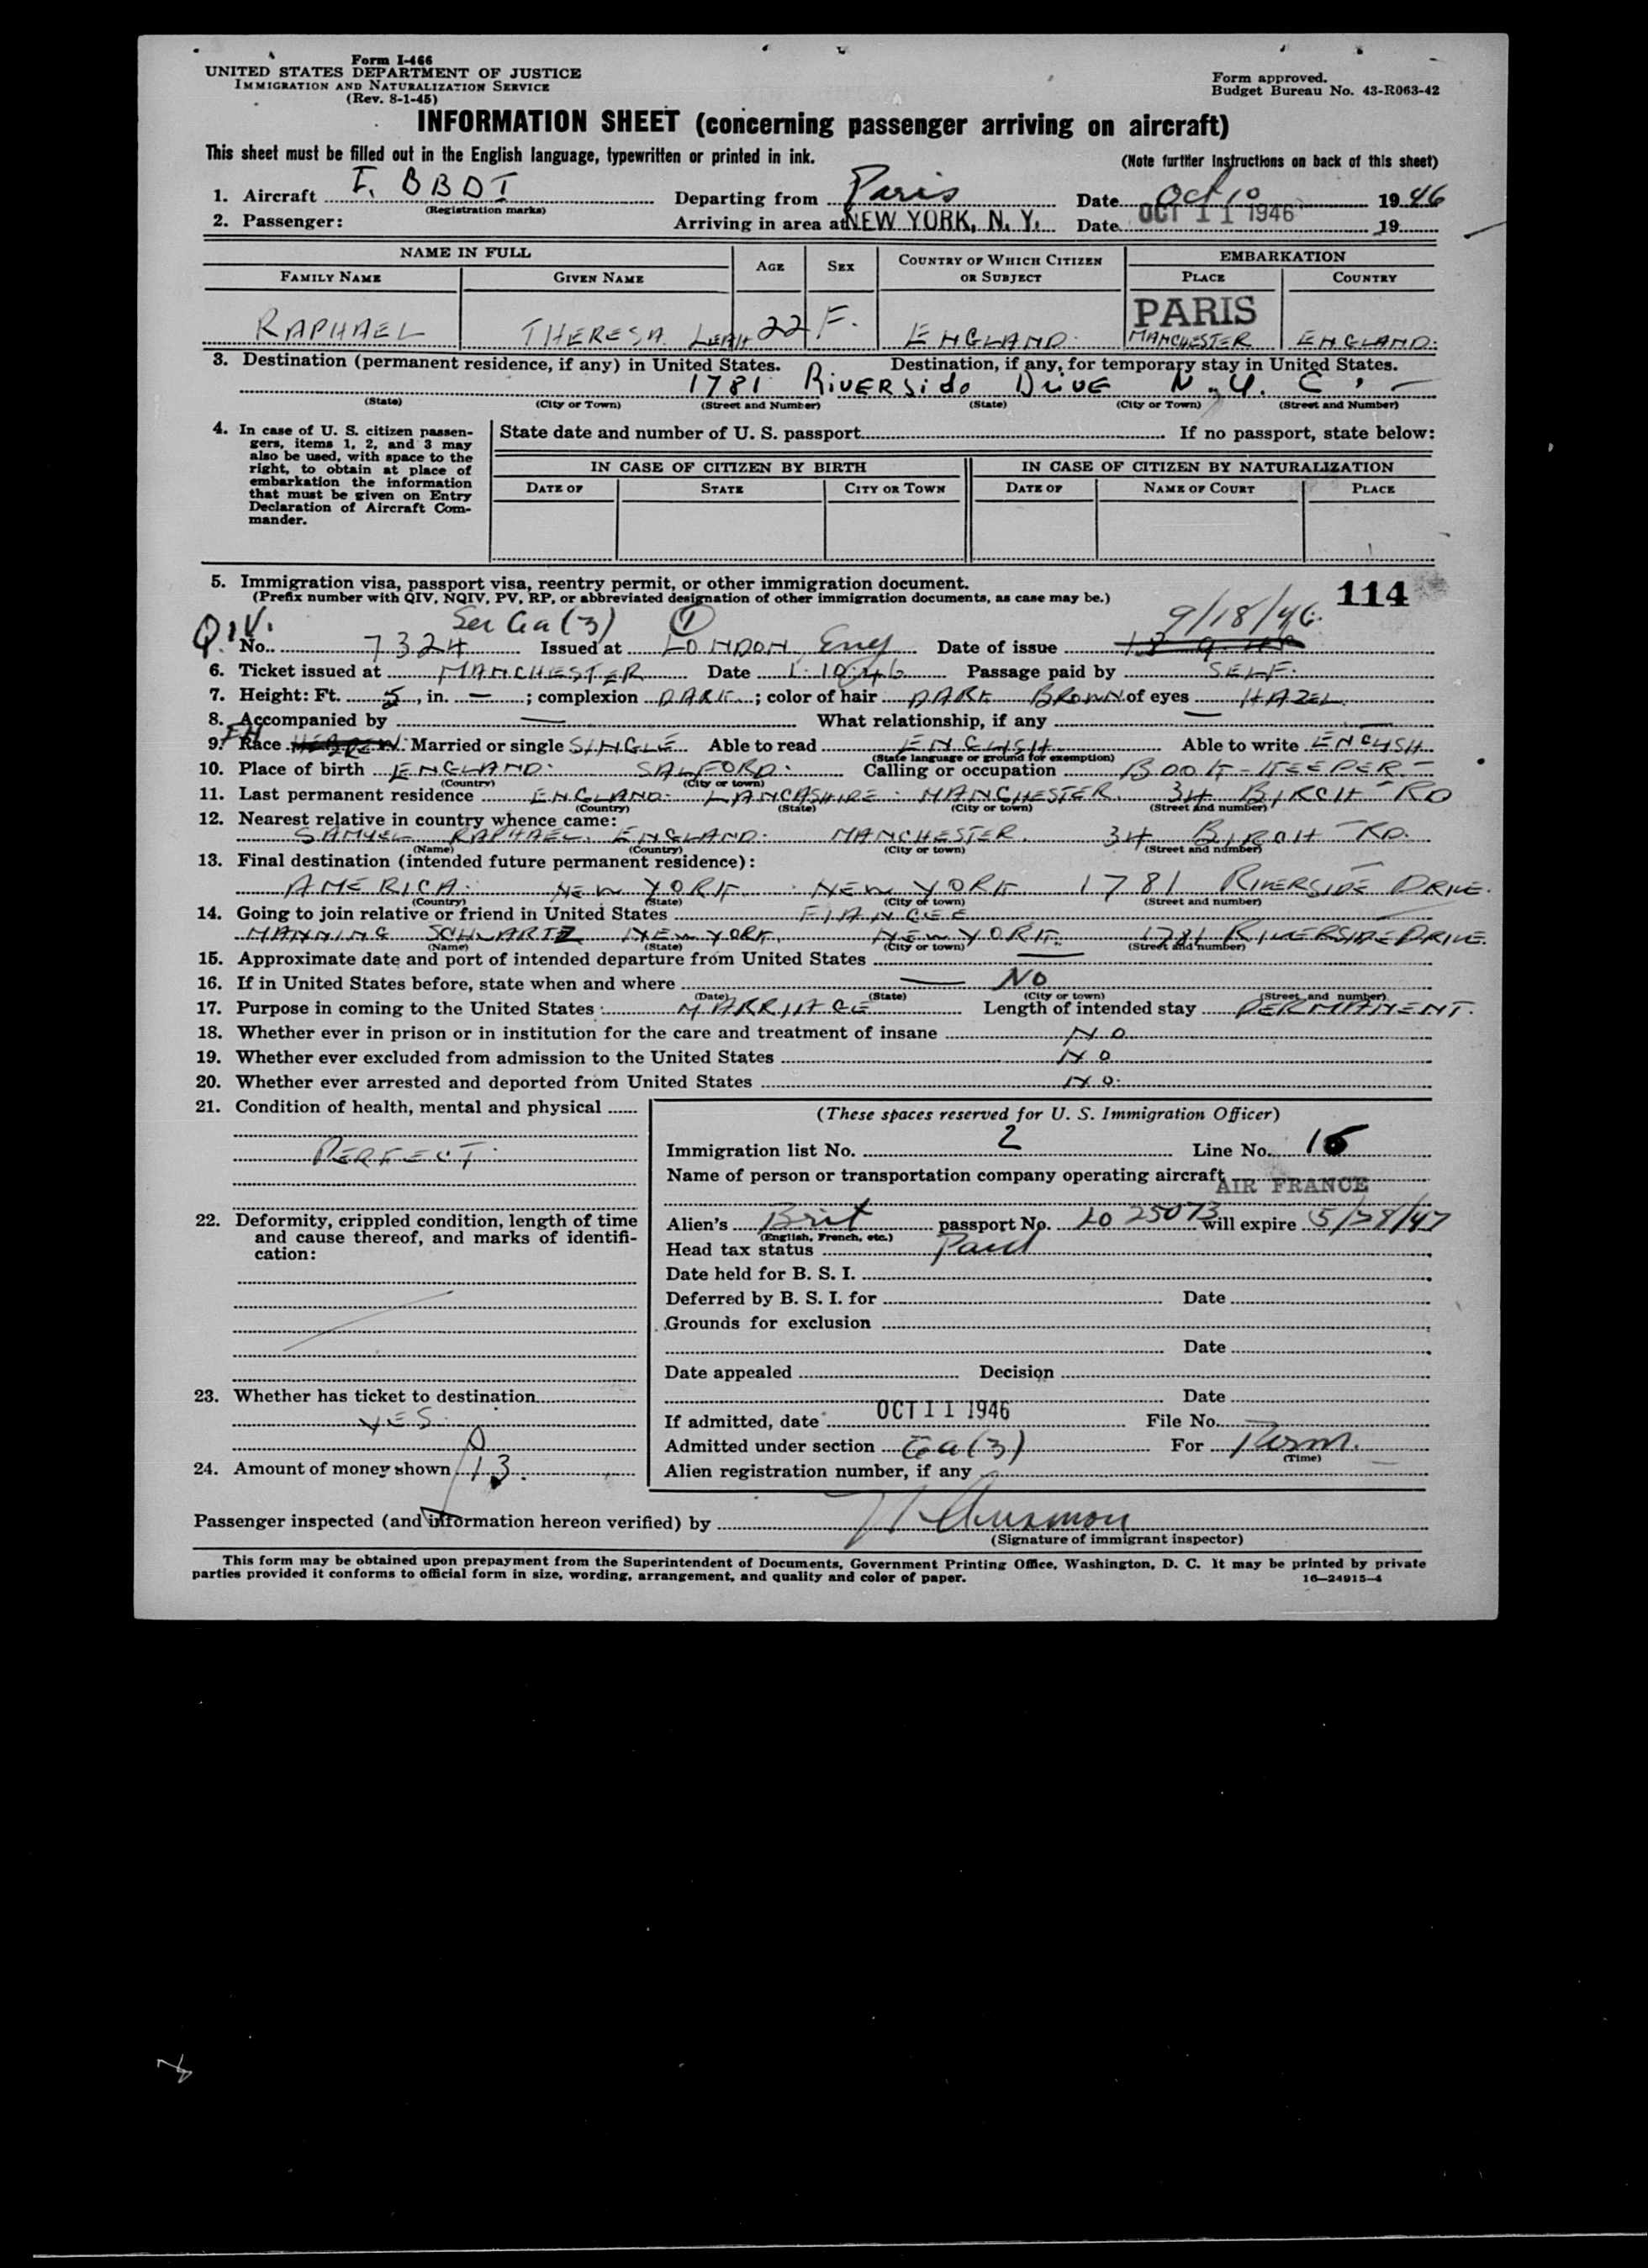 Form I-466
UNITED STATES DEPARTMENT OF JUSTICE
IMMIGRATION AND NATURALIZATION SERVICE
(Rev. 8-1-45)
Form approved.
Budget Bureau No. 43-R063-42
INFORMATION SHEET (concerning passenger arriving on aircraft)
This sheet must be filled out in the English language, typewritten or printed in ink. (Note further instructions on back of this sheet)
1. Aircraft F. BBDI (Registration marks) Departing from Paris Date Oct 10 1946
2. Passenger: Arriving in area at NEW YORK, N. Y. Date OCT 11 1946 19
NAME IN FULL AGE SEX COUNTRY OF WHICH CITIZEN OR SUBJECT EMBARKATION
FAMILY NAME GIVEN NAME PLACE COUNTRY
PARIS
RAPHAEL THERESA LEAH 22 F. ENGLAND. MANCHESTER ENGLAND.
3. Destination (permanent residence, if any) in United States. Destination, if any, for temporary stay in United States.
1781 RIVERSIDE DRIVE N.Y.C.
(State) (City or Town) (Street and Number) (State) (City or Town) (Street and Number)
4. In case of U. S. citizen passengers, items 1, 2, and 3 may also be used, with space to the right, to obtain at place of embarkation the information that must be given on Entry Declaration of Aircraft Commander.
State date and number of U. S. passport If no passport, state below:
IN CASE OF CITIZEN BY BIRTH IN CASE OF CITIZEN BY NATURALIZATION
DATE OF STATE CITY OR TOWN DATE OF NAME OF COURT PLACE
5. Immigration visa, passport visa, reentry permit, or other immigration document. 114
(Prefix number with QIV, NQIV, PV, RP, or abbreviated designation of other immigration documents, as case may be.)
Q.I.V. Sec 6a(3) 1 9/18/46.
No. 7324 Issued at LONDON, Eng Date of issue
6. Ticket issued at MANCHESTER Date 1.10.46 Passage paid by SELF.
7. Height: Ft. 5, in. —; complexion DARK; color of hair DARK BROWN of eyes HAZEL.
8. Accompanied by — What relationship, if any —
9. Race HEBREW. Married or single SINGLE Able to read ENGLISH Able to write ENGLISH
(State language or ground for exemption)
10. Place of birth ENGLAND. SALFORD. Calling or occupation BOOK-KEEPER
(Country) (City or town)
11. Last permanent residence ENGLAND. LANCASHIRE. MANCHESTER. 34 BIRCH RD
(Country) (State) (City or town) (Street and number)
12. Nearest relative in country whence came:
SAMUEL RAPHAEL. ENGLAND. MANCHESTER. 34 BIRCH RD.
(Name) (Country) (City or town) (Street and number)
13. Final destination (intended future permanent residence):
AMERICA. NEW YORK. NEW YORK 1781 RIVERSIDE DRIVE.
(Country) (State) (City or town) (Street and number)
14. Going to join relative or friend in United States FIANCEE
MANNING SCHWARTZ NEW YORK. NEW YORK. 1781 RIVERSIDE DRIVE.
(Name) (State) (City or town) (Street and number)
15. Approximate date and port of intended departure from United States —
16. If in United States before, state when and where — NO
(Date) (State) (City or town) (Street and number)
17. Purpose in coming to the United States MARRIAGE Length of intended stay PERMANENT.
18. Whether ever in prison or in institution for the care and treatment of insane NO
19. Whether ever excluded from admission to the United States NO
20. Whether ever arrested and deported from United States NO.
21. Condition of health, mental and physical
PERFECT.
22. Deformity, crippled condition, length of time and cause thereof, and marks of identification:
23. Whether has ticket to destination
YES.
24. Amount of money shown 13.
(These spaces reserved for U. S. Immigration Officer)
Immigration list No. 2 Line No. 16
Name of person or transportation company operating aircraft AIR FRANCE
Alien's Brit passport No. LO 25073 will expire 5/28/47
(English, French, etc.)
Head tax status Paid
Date held for B. S. I.
Deferred by B. S. I. for Date
Grounds for exclusion
Date
Date appealed Decision
Date
If admitted, date OCT 11 1946 File No.
Admitted under section 6a(3) For Perm.
(Time)
Alien registration number, if any
Passenger inspected (and information hereon verified) by
(Signature of immigrant inspector)
This form may be obtained upon prepayment from the Superintendent of Documents, Government Printing Office, Washington, D. C. It may be printed by private
parties provided it conforms to official form in size, wording, arrangement, and quality and color of paper. 16—24915-4